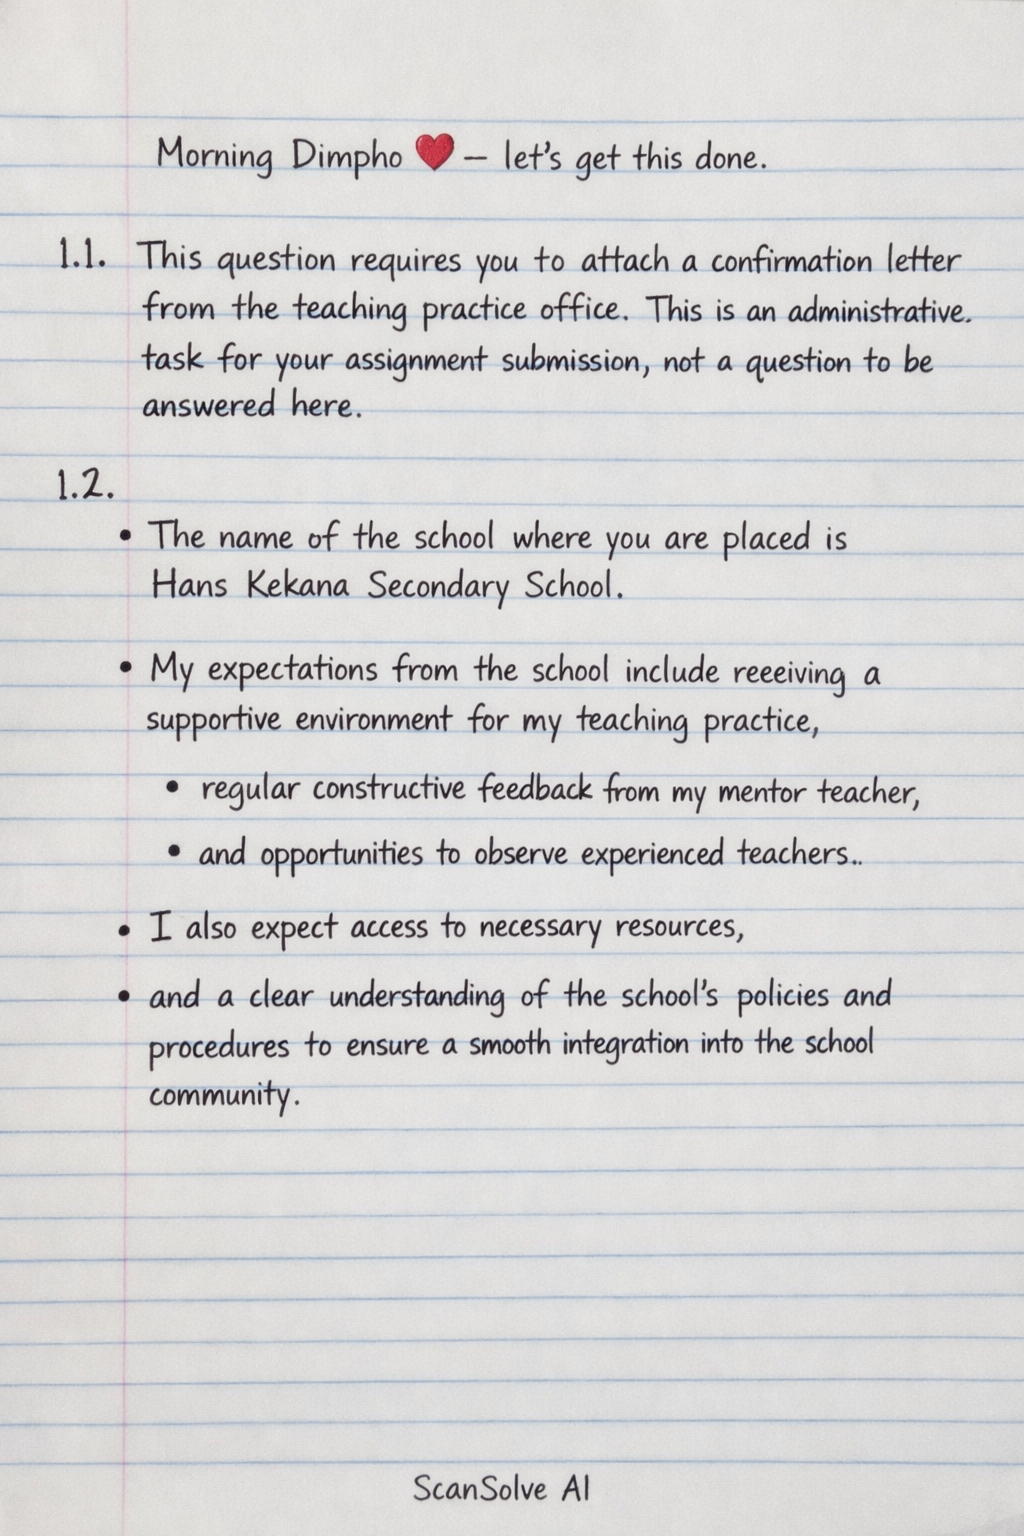 Morning Dimpho ❤️ – let's get this done.
1.1. This question requires you to attach a confirmation letter
from the teaching practice office. This is an administrative.
task for your assignment submission, not a question to be
answered here.
1.2.
• The name of the school where you are placed is
Hans Kekana Secondary School.
• My expectations from the school include reeeiving a
supportive environment for my teaching practice,
• regular constructive feedback from my mentor teacher,
• and opportunities to observe experienced teachers..
• I also expect access to necessary resources,
• and a clear understanding of the school's policies and
procedures to ensure a smooth integration into the school
community.
ScanSolve AI